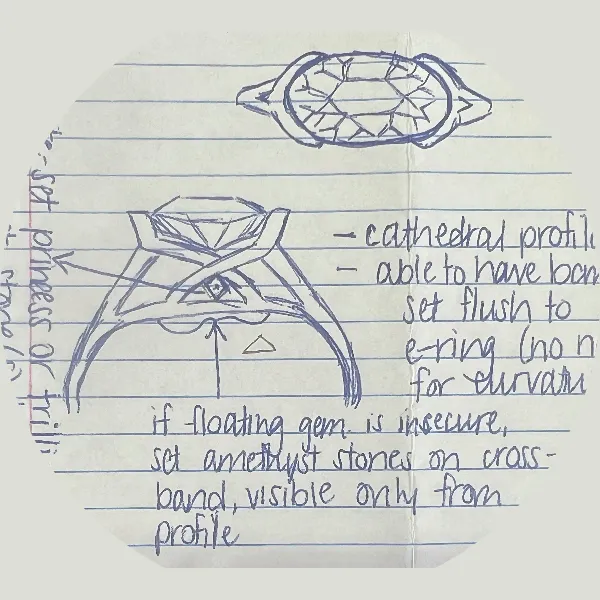 - cathedral profil
- able to have ban
set flush to
e-ring (no n
for curvatu
if floating gem is insecure,
set amethyst stones on cross-
band, visible only from
profile
set princess or trilli